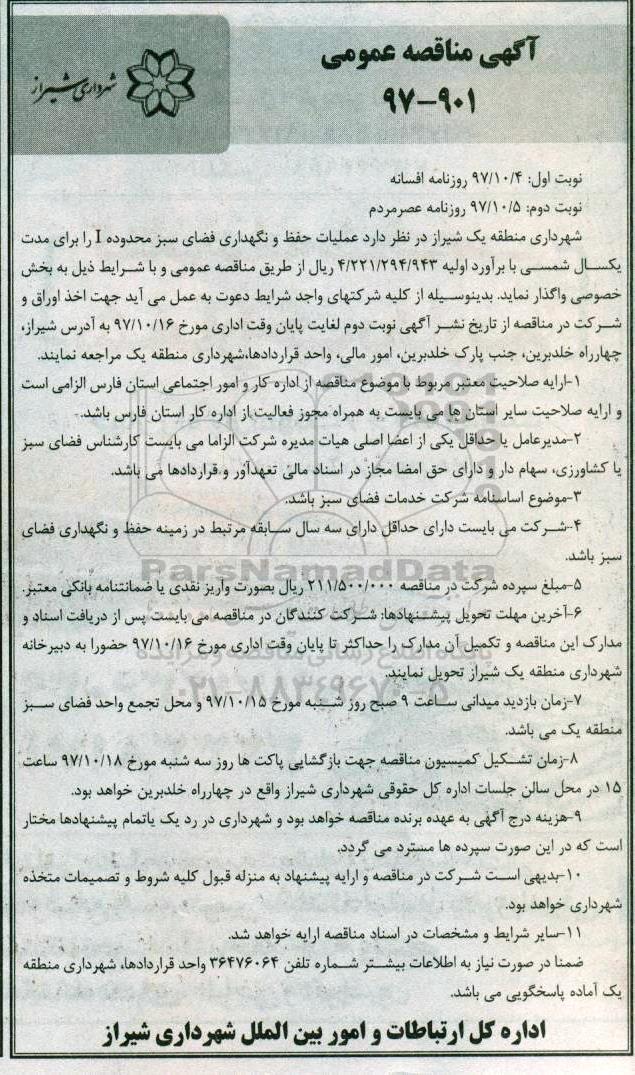 آگهی مناقصه عمومی
۹۷-۹۰۱
شهرداری شیراز
نوبت اول: ۹۷/۱۰/۴ روزنامه افسانه
نوبت دوم: ۹۷/۱۰/۵ روزنامه عصرمردم
شهرداری منطقه یک شیراز در نظر دارد عملیات حفظ و نگهداری فضای سبز محدوده I را برای مدت
یکسال شمسی با برآورد اولیه ۴/۲۲۱/۲۹۴/۹۴۳ ریال از طریق مناقصه عمومی و با شرایط ذیل به بخش
خصوصی واگذار نماید. بدینوسیله از کلیه شرکتهای واجد شرایط دعوت به عمل می آید جهت اخذ اوراق و
شرکت در مناقصه از تاریخ نشر آگهی نوبت دوم لغایت پایان وقت اداری مورخ ۹۷/۱۰/۱۶ به آدرس شیراز،
چهارراه خلدبرین، جنب پارک خلدبرین، امور مالی، واحد قراردادها،شهرداری منطقه یک مراجعه نمایند.
۱-ارایه صلاحیت معتبر مربوط با موضوع مناقصه از اداره کار و امور اجتماعی استان فارس الزامی است
و ارایه صلاحیت سایر استان ها می بایست به همراه مجوز فعالیت از اداره کار استان فارس باشد.
۲-مدیرعامل یا حداقل یکی از اعضا اصلی هیات مدیره شرکت الزاما می بایست کارشناس فضای سبز
یا کشاورزی، سهام دار و دارای حق امضا مجاز در اسناد مالی تعهدآور و قراردادها می باشد.
۳-موضوع اساسنامه شرکت خدمات فضای سبز باشد.
۴-شرکت می بایست دارای حداقل دارای سه سال سابقه مرتبط در زمینه حفظ و نگهداری فضای
سبز باشد.
۵-مبلغ سپرده شرکت در مناقصه ۲۱۱/۵۰۰/۰۰۰ ریال بصورت واریز نقدی یا ضمانتنامه بانکی معتبر.
۶-آخرین مهلت تحویل پیشنهادها: شرکت کنندگان در مناقصه می بایست پس از دریافت اسناد و
مدارک این مناقصه و تکمیل آن مدارک را حداکثر تا پایان وقت اداری مورخ ۹۷/۱۰/۱۶ حضورا به دبیرخانه
شهرداری منطقه یک شیراز تحویل نمایند.
۷-زمان بازدید میدانی ساعت ۹ صبح روز شنبه مورخ ۹۷/۱۰/۱۵ و محل تجمع واحد فضای سبز
منطقه یک می باشد.
۸-زمان تشکیل کمیسیون مناقصه جهت بازگشایی پاکت ها روز سه شنبه مورخ ۹۷/۱۰/۱۸ ساعت
۱۵ در محل سالن جلسات اداره کل حقوقی شهرداری شیراز واقع در چهارراه خلدبرین خواهد بود.
۹-هزینه درج آگهی به عهده برنده مناقصه خواهد بود و شهرداری در رد یک یاتمام پیشنهادها مختار
است که در این صورت سپرده ها مسترد می گردد.
۱۰-بدیهی است شرکت در مناقصه و ارایه پیشنهاد به منزله قبول کلیه شروط و تصمیمات متخذه
شهرداری خواهد بود.
۱۱-سایر شرایط و مشخصات در اسناد مناقصه ارایه خواهد شد.
ضمنا در صورت نیاز به اطلاعات بیشتر شماره تلفن ۳۶۴۷۶۰۶۴ واحد قراردادها، شهرداری منطقه
یک آماده پاسخگویی می باشد.
اداره کل ارتباطات و امور بین الملل شهرداری شیراز
ParsNamadData
پایگاه اطلاع رسانی مناقصه و مزایده
۰۲۱-۸۸۳۴۹۶۷۰-۵